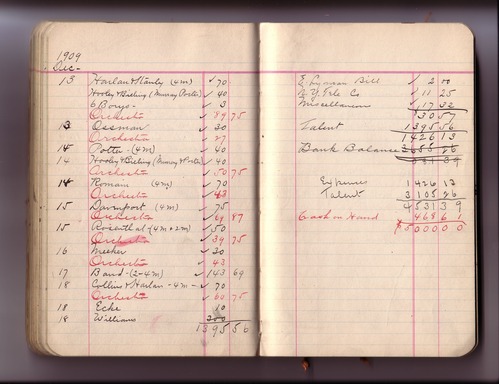 1909
Dec-
13 Harlan & Stanley (4m) ✓ 70
Hooley & Bieling (Murray Porter) ✓ 40
6 Boys - ✓ 3
Orchestra ✓ 89 75
13 Ossman ✓ 30
Orchestra ✓ 27
14 Potter - (4m) ✓ 40
14 Hooley & Bieling (Murray & Porter) ✓ 40
Orchestra ✓ 50 75
14 Romain (4m) ✓ 70
Orchestra ✓ 43
15 Davenport (4m) ✓ 75
Orchestra ✓ 69 87
15 Rosenthal - (4m & 2m) ✓ 50
Orchestra ✓ 39 75
16 Meeker ✓ 20
Orchestra ✓ 43
17 Band - (2-4m) ✓ 143 69
18 Collins & Harlan - 4m - ✓ 70
Orchestra ✓ 60 75
18 Ecke 10
18 Williams
1395 56
Bill ✓ 2 00
N.Y. Tele Co ✓ 11 25
Miscellaneous ✓ 17 32
30 57
Talent 1395 56
1426 13
Bank Balance
Expenses 1426 13
Talent 3105 26
4531 39
Cash on Hand 468 61
$5000 00